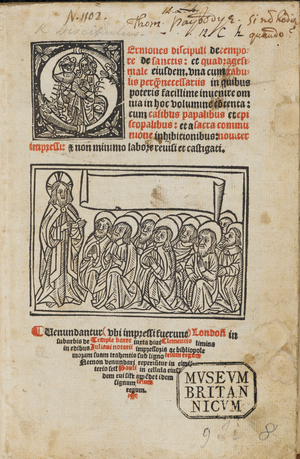 N. 1102.
Sermones discipuli de tempore
de sanctis: et quadragesi
male eiusdem, vna cum tabu
lis necessariis in quibus
poteris facillime inuenire om
nia in hoc volumine cotenta:
cum casibus papalibus et epi
scopalibus: et a sacra commu
nione inhibitionibus: nouiter
impressi: & non minimo labore reuisi et castigati.
Venundantur vbi impressi fuerunt London in
suburbis de Temple barre iuxta diui Clementis limina
in edibus Juliani notarii impressoris ac bibliopole
moram suam trahentis sub signo trium regum
Necnon venundari reperientur in cimi
terio sancti Pauli in cellula eius
dem
signum trium
regum.
MVSEVM
BRITAN
NICVM